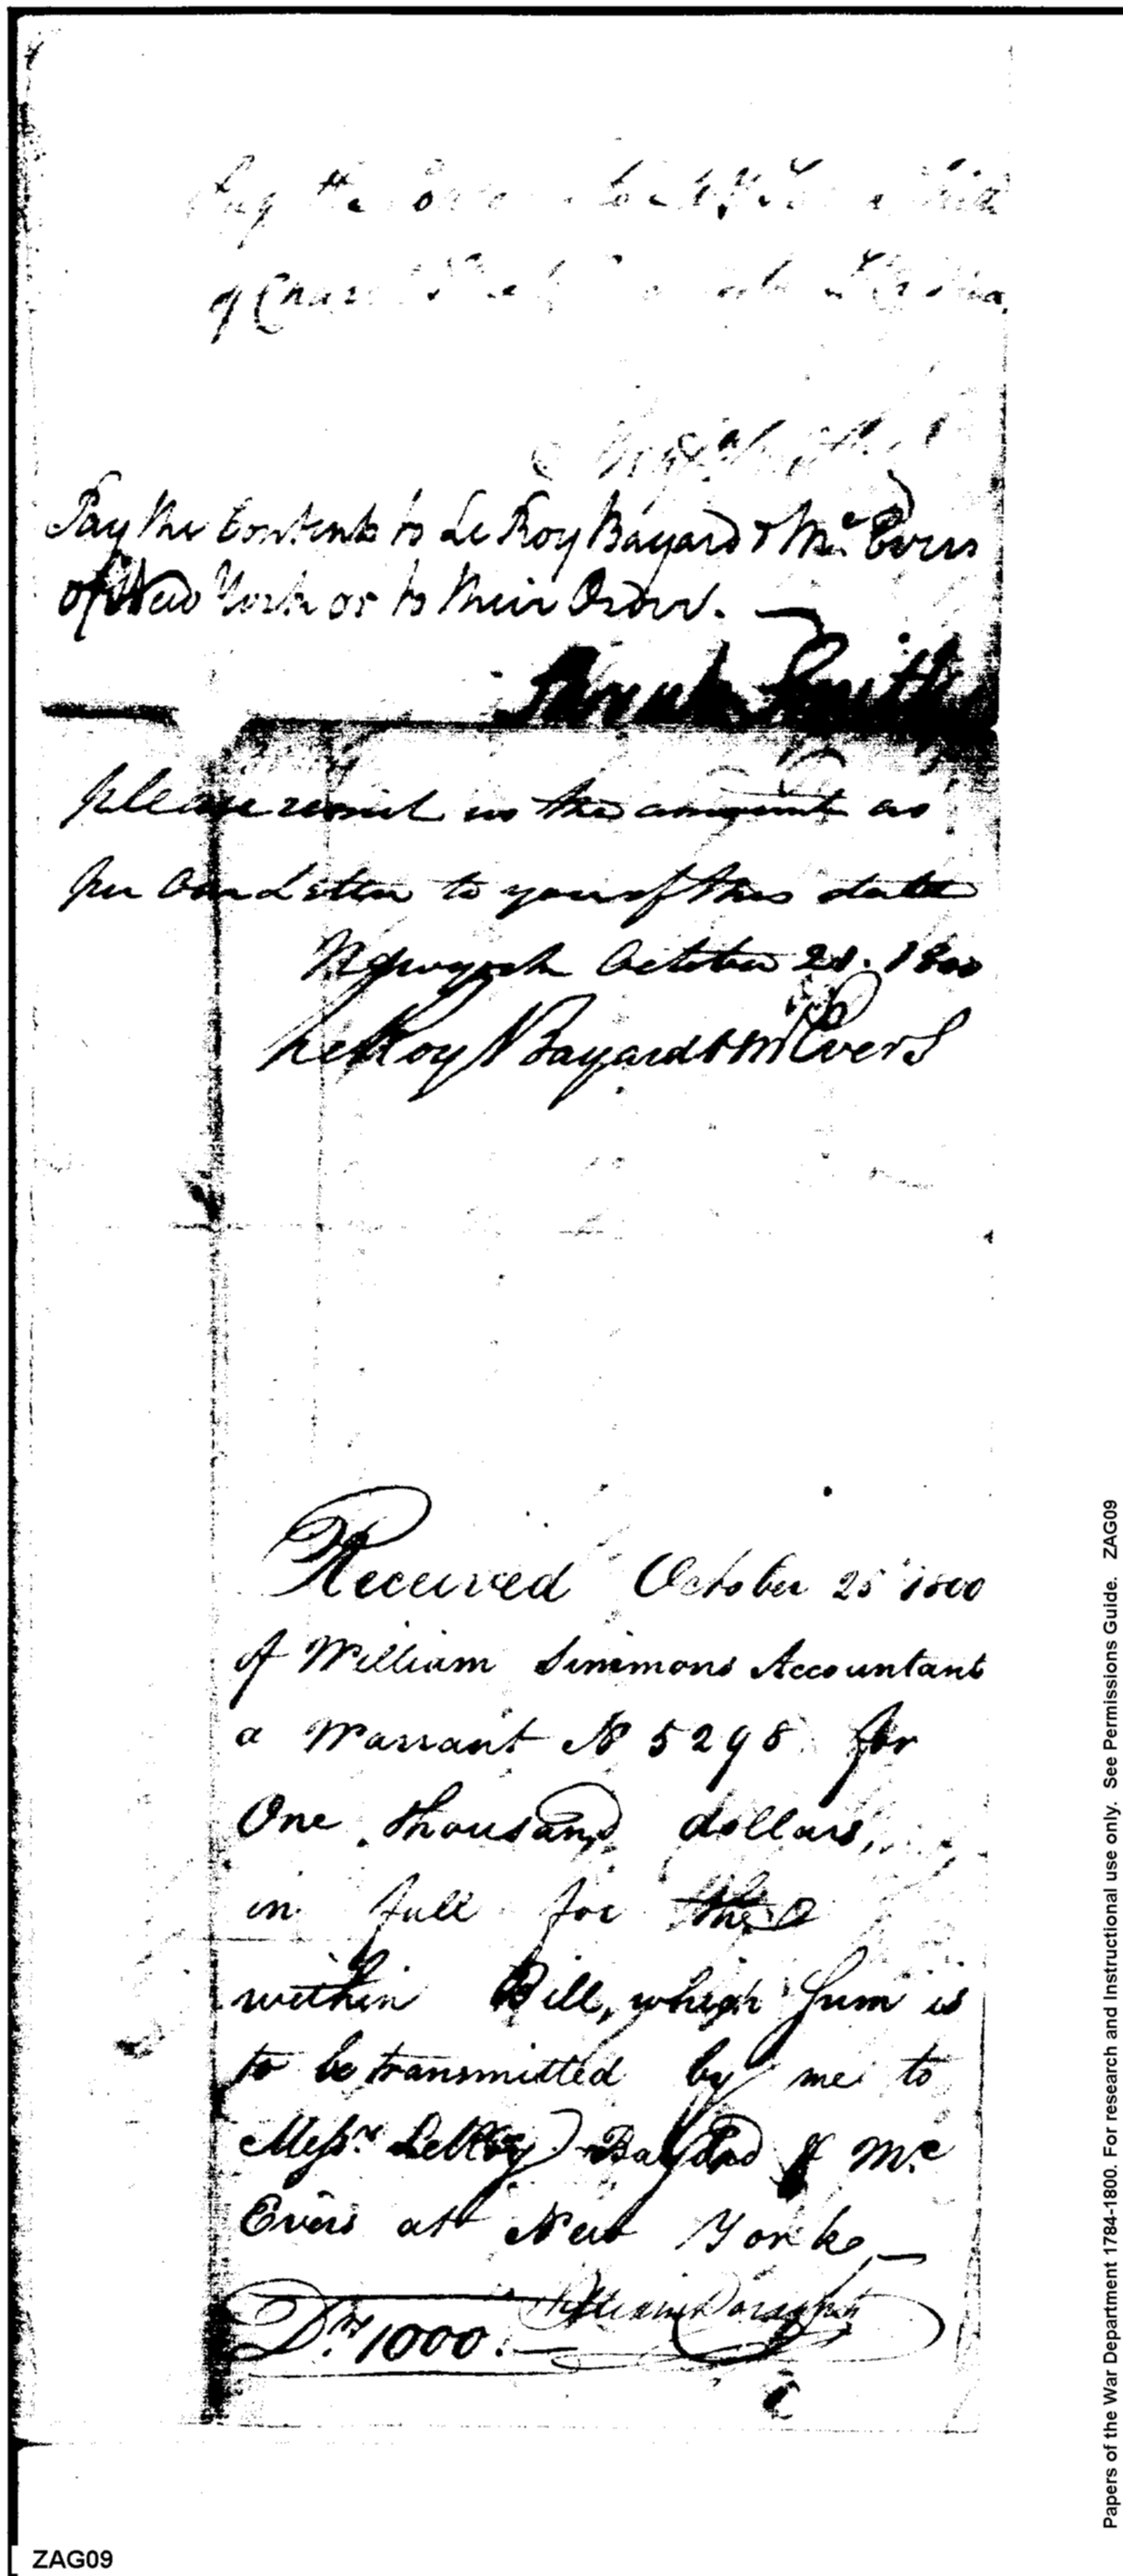 Pay the
of
Pay the Contents to Le Roy Bayard & Mc. Evers
of New York or to their Order. —
Sarah Smith
please remit us the amount as
per our Letter to you of this date
Newyork October 21. 1800
LeRoy Bayard & McEvers
Received October 25 1800
of William Simmons Accountant
a Warrant No 5298 for
One thousand dollars,
in full for the
within Bill, which Sum is
to be transmitted by me to
Messrs. LeRoy Bayard & Mc.
Evers at New York, —
William
Drs. 1000. —
Papers of the War Department 1784-1800. For research and Instructional use only. See Permissions Guide. ZAG09
ZAG09